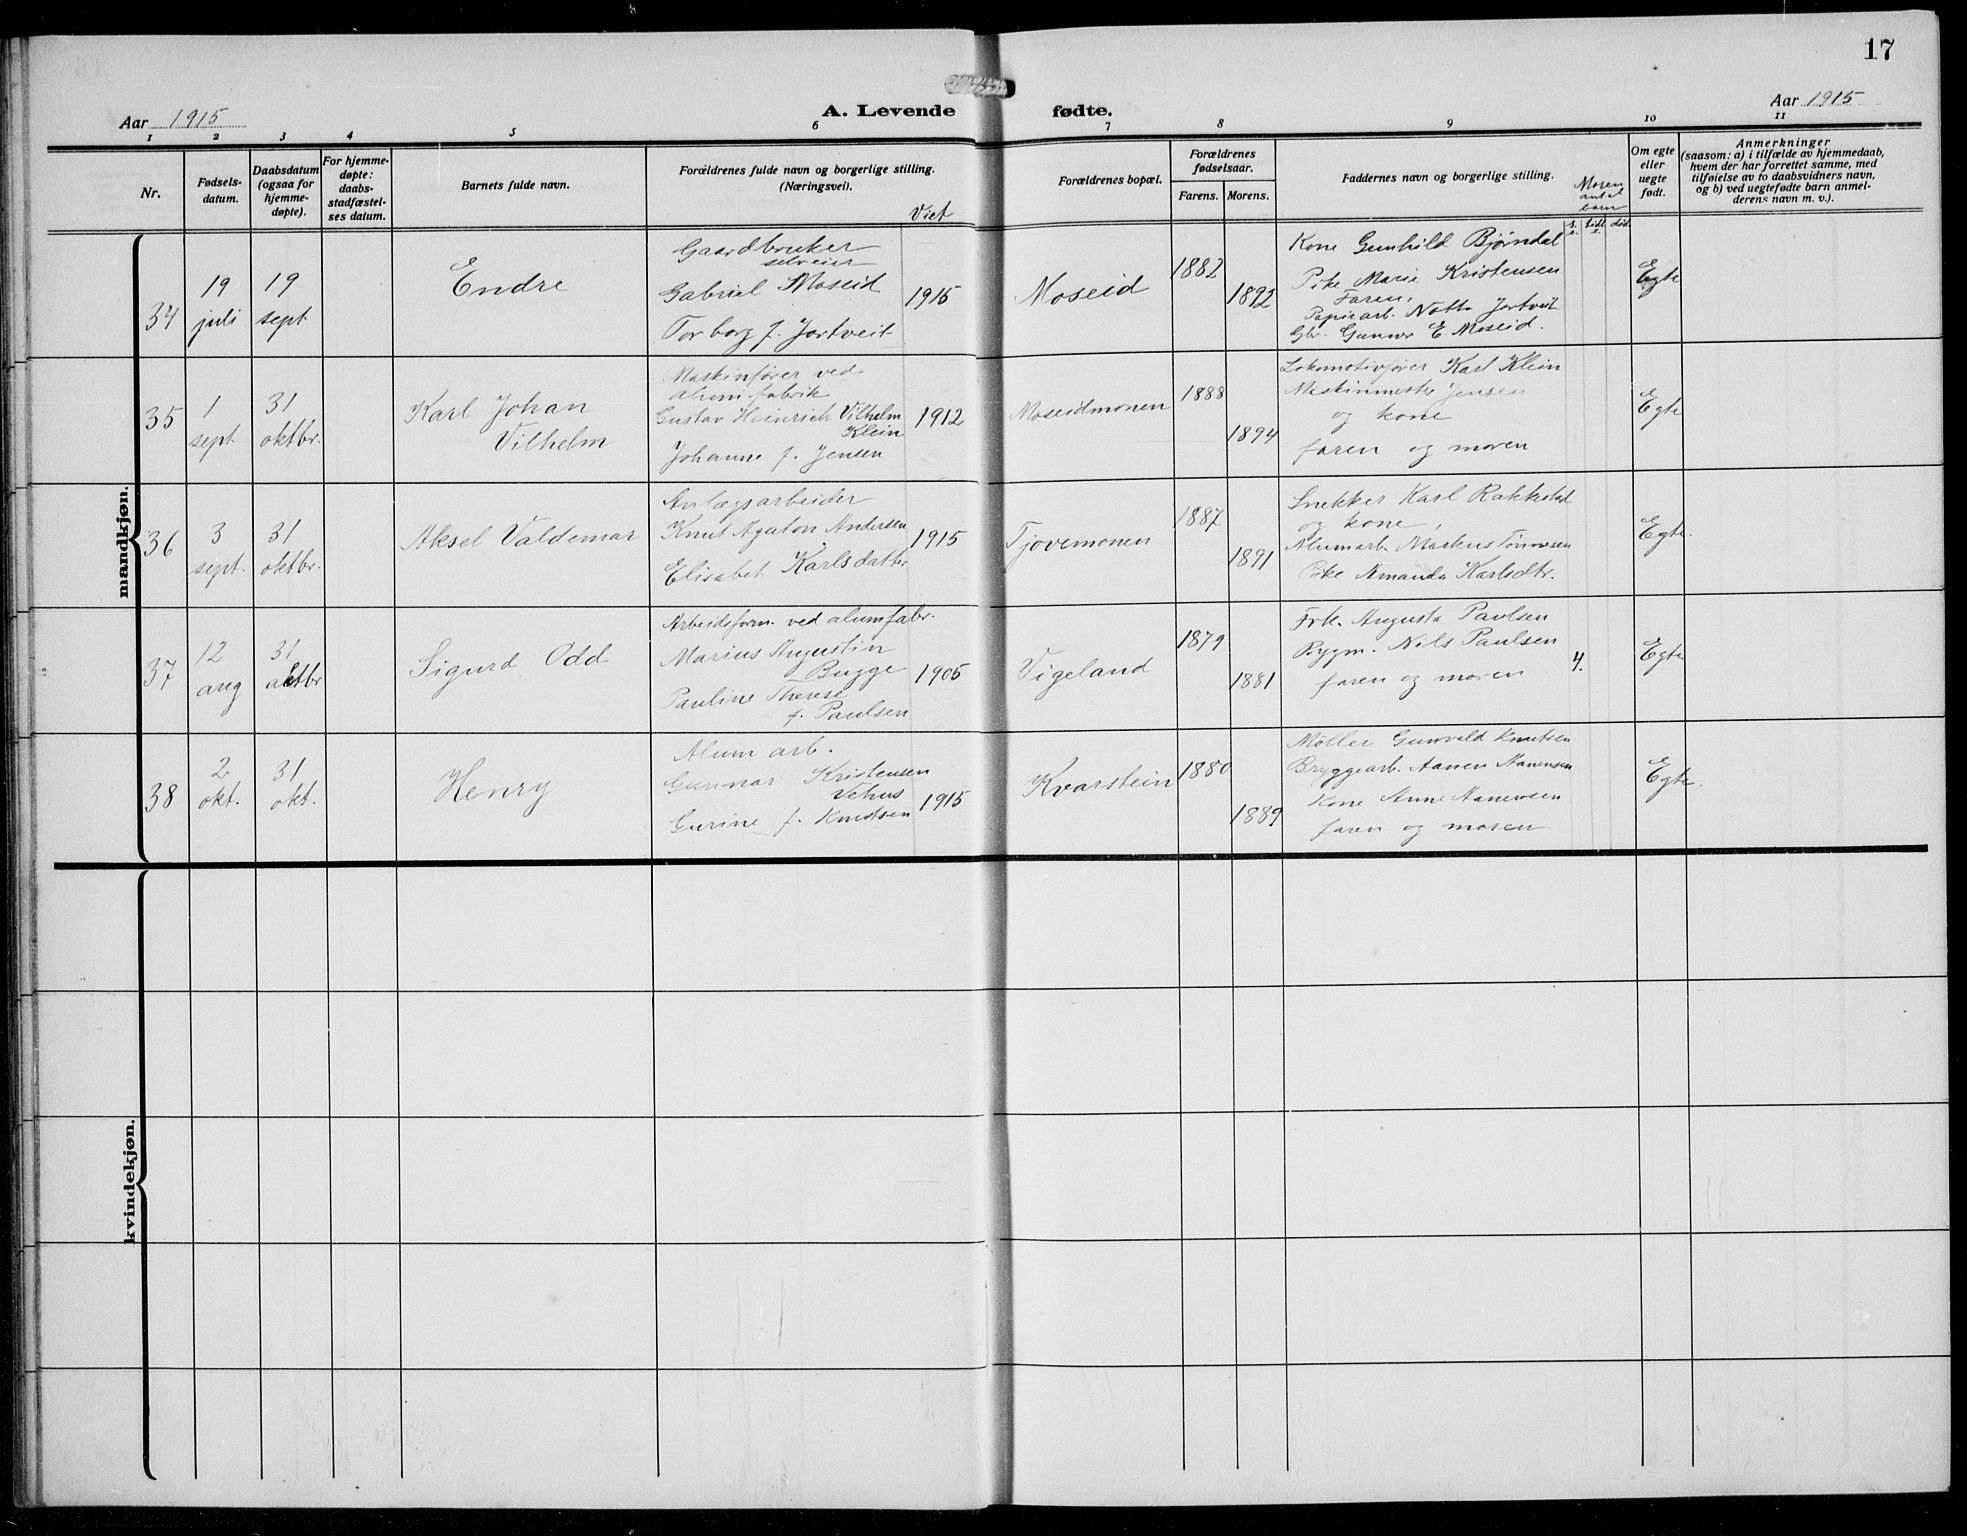 17
Aar 1915
A. Levende fødte.
Aar 1915
1 2 3 4 5 6 7 8 9 10 11
Nr.
Fødsels-
datum.
Daabsdatum
(ogsaa for
hjemme-
døpte).
For hjemme-
døpte:
daabs-
stadfæstel-
ses datum.
Barnets fulde navn.
Forældrenes fulde navn og borgerlige stilling.
(Næringsvei).
Viet
Forældrenes bopæl.
Forældrenes
fødselsaar.
Farens. Morens.
Faddernes navn og borgerlige stilling.
Moren
antal
barn
Om egte
eller
uegte
født.
Anmerkninger
(saasom: a) i tilfælde av hjemmedaab,
hvem der har forrettet samme, med
tilføielse av to daabsvidners navn,
og b) ved uegtefødte barn anmel-
derens navn m. v.).
mandkjøn.
34
19
juli
19
sept
Endre
Gaardbruker
selveier
Gabriel Moseid
Torborg f. Jortveit
1915
Moseid
1882
1892
Kone Gunhild Bjørndal
Pike Marie Kristensen
Faren,
Papirarb. Notto Jortveit
Gbr. Gunvor E Moseid.
Egte
35
1
sept
31
oktbr.
Karl Johan
Vilhelm
Maskinfører ved
alum fabrik
Gustav Heinrich Vilhelm
Klein
Johanne f. Jensen
1912
Moseidmonen
1888
1894
Lokomotivfører Karl Klein
Maskinmester Jensen
og kone
faren og moren
Egte
36
3
sept.
31
oktbr.
Aksel Valdemar
Anlægsarbeider
Knut Agaton Andersen
Elisabet Karlsdatter
1915
Tjovemonen
1887
1891
Snekker Karl Rakkestad
og kone,
Alumarb. Markus Tønnesen
Pike Amanda Karlsdtr.
Egte.
37
12
aug
31
oktbr
Sigurd Odd
Arbeidsform. ved alumfabr.
Marius Augustin
Bugge
Pauline Therese
f. Paulsen
1905
Vigeland
1879
1881
Frk. Augusta Paulsen
Bygm. Nils Paulsen
faren og moren
4.
Egte
38
2
okt.
31
okt.
Henry
Alum arb.
Gunnar Kristensen
Vehus
Gurine f. Knutsen
1915
Kvarstein
1880
1889
Møller Gunvald Knutsen
Bryggearb. Aanen Aanensen
Kone Anne Aanensen
faren og moren
Egte.
kvindekjøn.